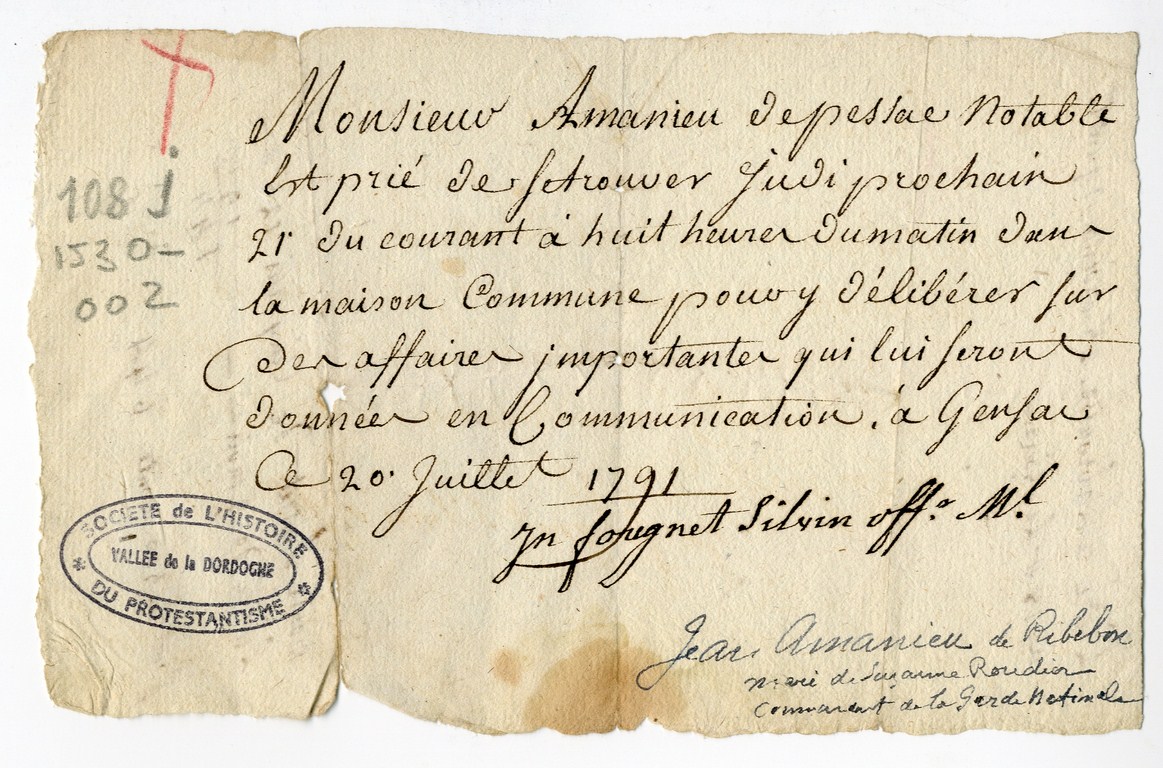 Monsieur Amanieu depessac Notable
Est prié de se trouver Judi prochain
21 du courant à huit heures du matin dans
la maison Commune pour y délibérer sur
Des affaires jmportantes qui lui seront
données en Communication, à Gensac
Ce 20 Juillet 1791
Jn fougnet Silvin offo. Ml
Jean Amanieu de Ribebon
mari de Suzanne Roudier
Commandant de la Garde Nationale
108 J
1530-
002
SOCIETE de L'HISTOIRE
VALLEE de la DORDOGNE
DU PROTESTANTISME